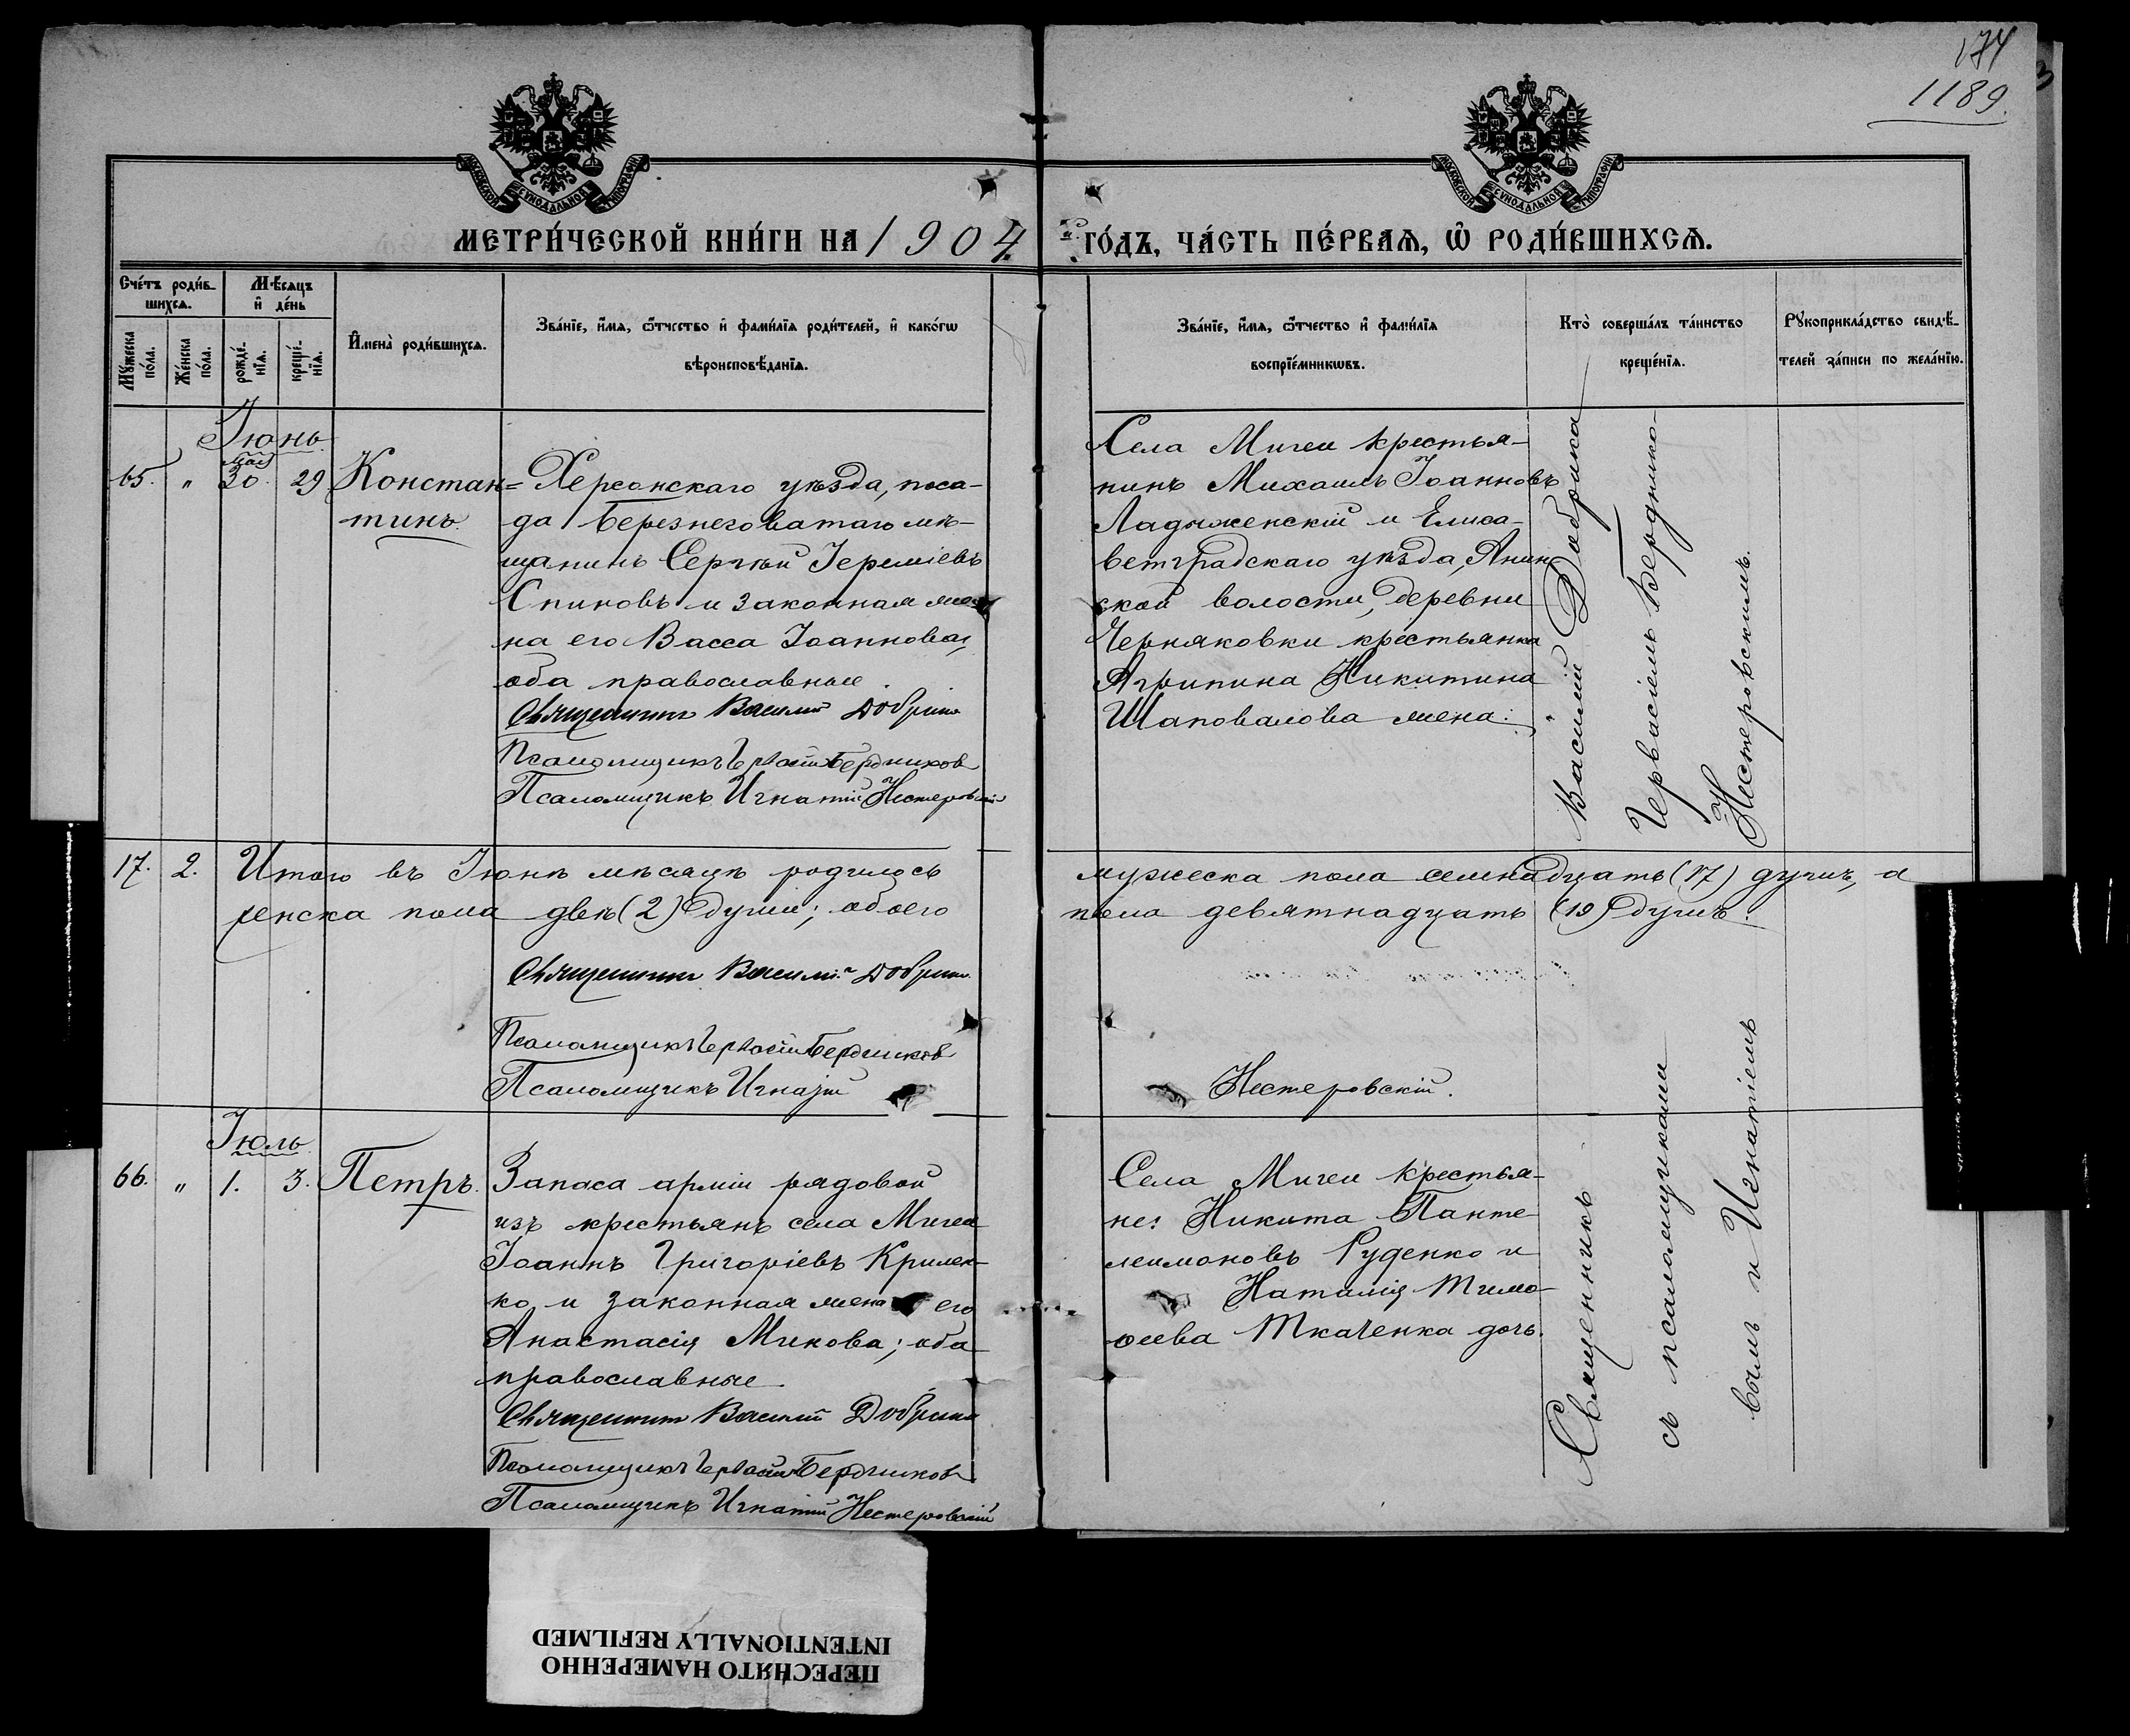 174
1189.
МОСКОВСКОЙ СѴНОДАЛЬНОЙ ТИПОГРАФІИ
МОСКОВСКОЙ СѴНОДАЛЬНОЙ ТИПОГРАФІИ
МЕТРИ́ЧЕСКОЙ КНИ́ГИ НА 1904
ГО́ДЪ, ЧА́СТЬ ПЕ́РВАѦ, Ѡ҆ РОДИ́ВШИХСѦ.
Сче́тъ роди́в-
шихсѧ.
Мѣ́сѧцъ
и҆ де́нь
Мꙋ́жеска
по́ла.
Же́нска
по́ла.
рожде́-
нїѧ.
креще́-
нїѧ.
И҆мена̀ роди́вшихсѧ.
Зва́нїе, и҆́мѧ, ѻ҆́тчество и҆ фами́лїѧ роди́телей, и҆ како́гѡ
вѣроисповѣ́данїѧ.
Зва́нїе, и҆́мѧ, ѻ҆́тчество и҆ фами́лїѧ
воспрїе́мникѡвъ.
Кто̀ соверша́лъ та́инство
креще́нїѧ.
Рꙋкоприкла́дство свидѣ́-
телей за́писи по жела́нїю.
Іюнь
Мая
65. " 30. 29 Констан=
тинъ.
Херсонскаго уѣзда, поса-
да Березнеговатаго мѣ-
щанинъ Сергѣй Іереміевъ
Спиновъ и законная же-
на его Васса Іоаннова,
оба православные.
Священникъ Василій Добрика
Псаломщикъ Гервасій Бердников
Псаломщикъ Игнатій Нестеровскій
Села Мигеи крестья-
нинъ Михаилъ Іоанновъ
Ладыженскій и Елиса-
ветградскаго уѣзда, Анин
ской волости, деревни
Черняковки крестьянка
Агрипина Никитина
Шаповалова жена.
Василій Добрика
Гервасіемъ Бердннко-
Нестеровскимъ.
17. 2. Итого въ Іюнѣ мѣсяцѣ родилось
мужеска пола семнадцать (17) душъ, а
женска пола двѣ (2) души; обоего
пола девятнадцать (19) душъ.
Священникъ Василій Добрика
Псаломщикъ Гервасій Бердников
Псаломщикъ Игнатій
Нестеровскій.
Іюль
66. " 1. 3. Петръ.
Запаса арміи рядовой
изъ крестьянъ села Мигеи
Іоаннъ Григоріевъ Крилен-
ко и законная жена его
Анастасія Микова; оба
православные.
Священникъ Василій Добрика
Псаломщикъ Гервасій Бердников
Псаломщикъ Игнатій Нестеровскій
Села Мигеи крестья-
не: Никита Панте
леимоновъ Руденко и
Наталія Тимо-
ѳеева Ткаченка дочь.
Священникъ
съ псаломщиками
вымъ и Игнатіемъ
ПЕРЕСНЯТО НАМЕРЕННО
INTENTIONALLY REFILMED